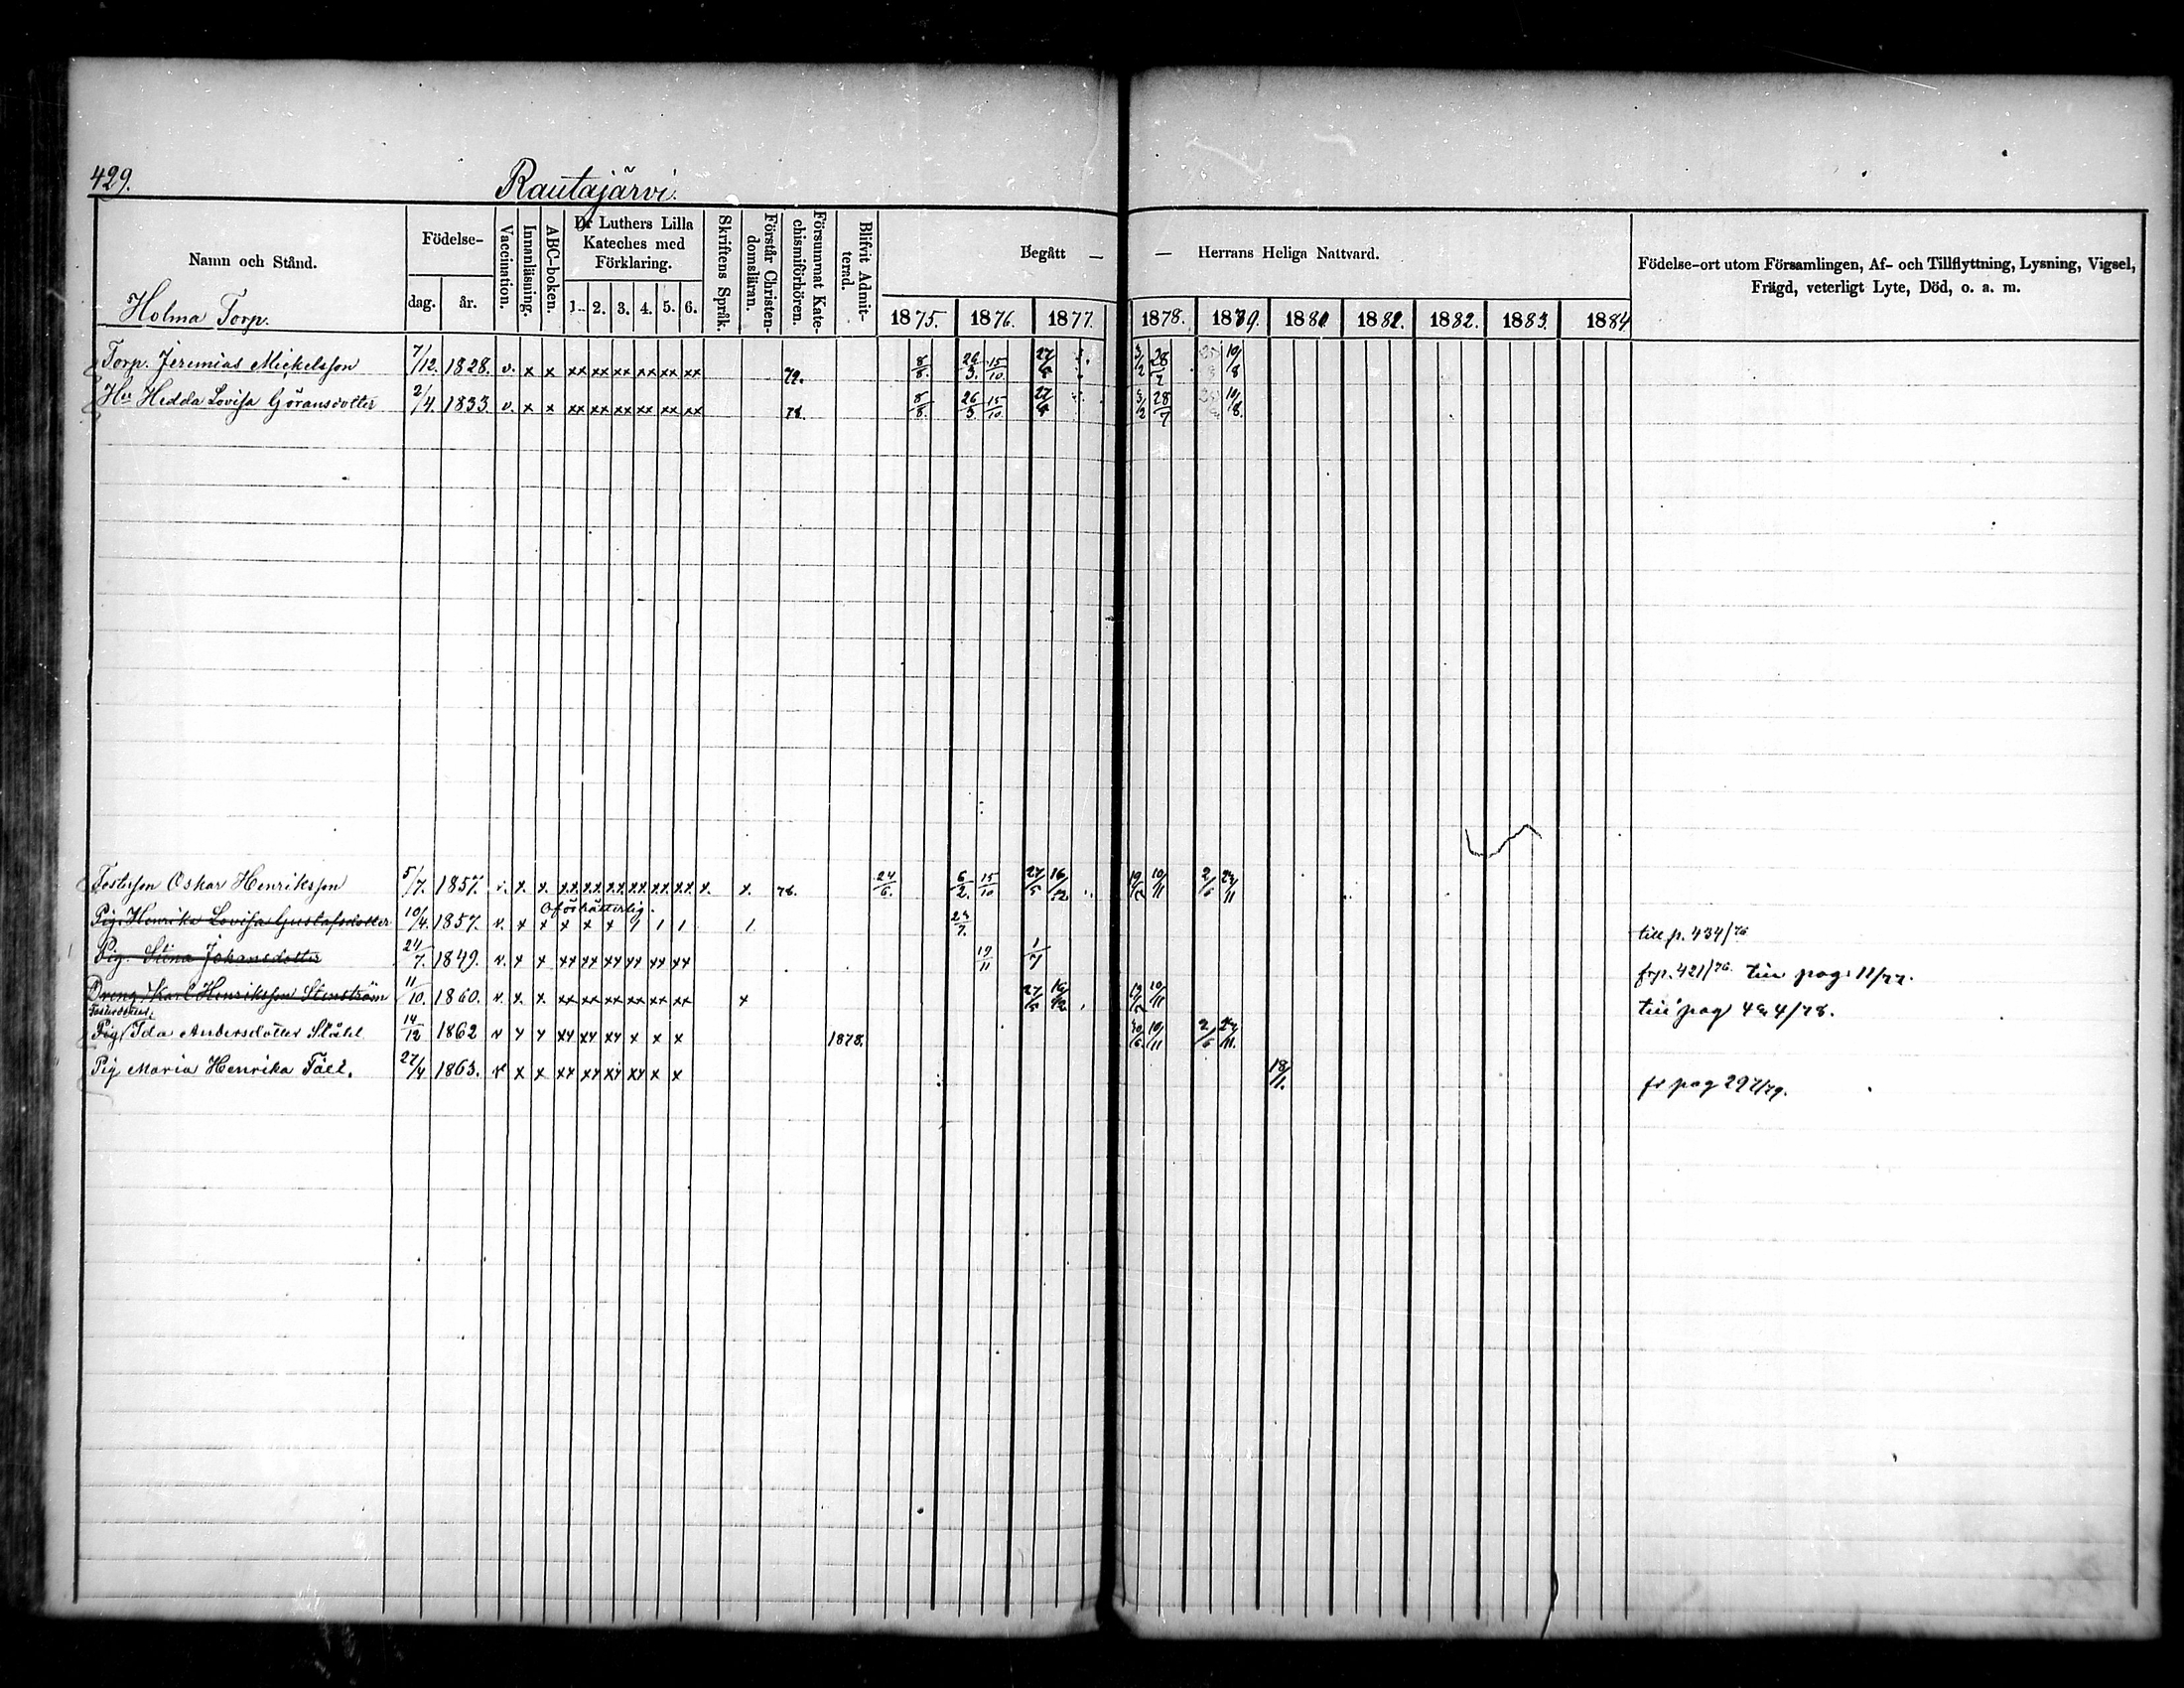 429.
Rautajärvi.
Namn och Stånd.
Födelse-
dag.
år.
Vaccination.
Innanläsning.
ABC-boken.
Dr Luthers Lilla
Kateches med
Förklaring.
1. 2. 3. 4. 5. 6.
Skriftens Språk.
Förstår Christen-
domsläran.
Försummat Kate-
chismiförhören.
Blifvit Admit-
terad.
Begått — — Herrans Heliga Nattvard.
1875. 1876. 1877. 1878. 1879. 1880 1881. 1882. 1883. 1884
Födelse-ort utom Församlingen, Af- och Tillflyttning, Lysning, Vigsel,
Frägd, veterligt Lyte, Död, o. a. m.
Holma Torp.
Torp. Jeremias Mickelsson 7/12. 1828. v. x x xx xx xx xx xx xx 79. 8/8. 26/3. 15/10. 27/5 3/2 28/7 10/8
Hu Hedda Lovisa Göransdotter 2/4. 1833. v. x x xx xx xx xx xx xx 78. 8/8. 26/3. 15/10. 27/5 3/2 28/7 10/8.
Fosterson Oskar Henriksson 5/7. 1857. v. x. x. xx xx xx xx xx xx x. x. 78. 24/6. 6/2. 15/10 27/5 16/12 10/11 2/6 23/11
Oförhätterlig.
Pig. Henrika Lovisa Gustafsdotter 10/4. 1857. v. x x x x x 1 1 1 1 23/7. till p. 434/76
Pig. Stina Johansdotter 24/7. 1849. v. x x xx xx xx xx xx xx 19/11 1/7 frp. 421/76. till pag. 11/77.
Dreng Karl Henriksson Stenström 11/10. 1860. v. x. x xx xx xx xx xx xx x 27/5 16/12 10/11 till pag 424/78.
Fosterdotter.
Pig Ida Andersdotter Ståhl 14/12 1862 v x x xx xx xx x x x 1878. 30/6. 10/11 2/6 23/11.
Pig Maria Henrika Fäll. 27/4 1863. v x x xx xx xx xx x x 18/11. fr pag 297/79.